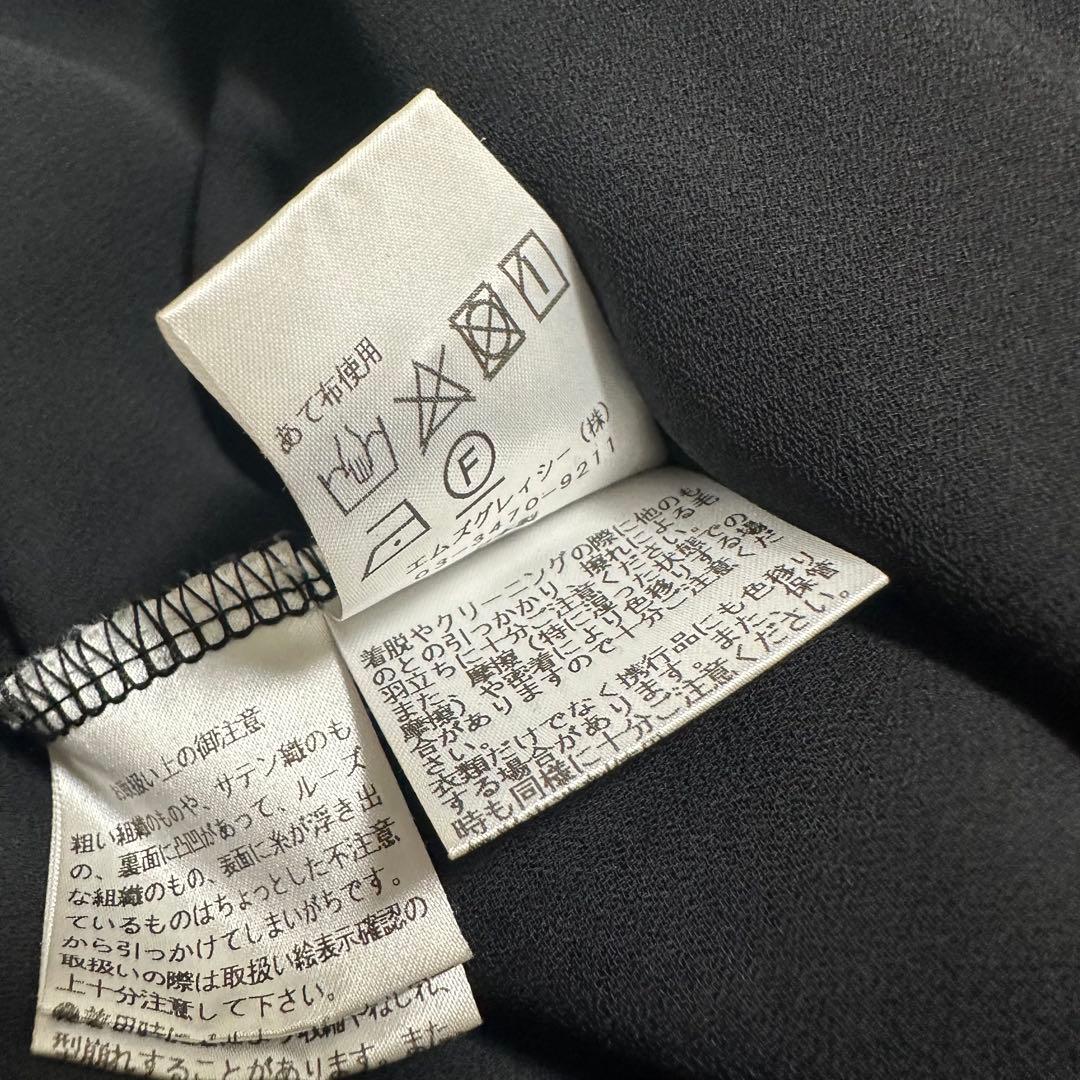 あて布使用
F
エムズグレィシー(株)
03-3470-9211
着脱やクリーニングの際に他のも
のとの引っかかり、擦れによる毛
羽立ちに十分ご注意ください。
また、摩擦(特に湿った状態での
摩擦)や密着により色移りする場
合がありますので十分ご注意くだ
さい。
衣類だけでなく携行品にも色移り
する場合があります。また、保管
時も同様に十分ご注意ください。
お取扱い上の御注意
粗い組織のものや、サテン織のも
の、裏面に凸凹があって、ルーズ
な組織のもの、表面に糸が浮き出
ているものはちょっとした不注意
から引っかけてしまいがちです。
取扱いの際は取扱い絵表示確認の
上十分注意して下さい。
型崩れすることがあります。また